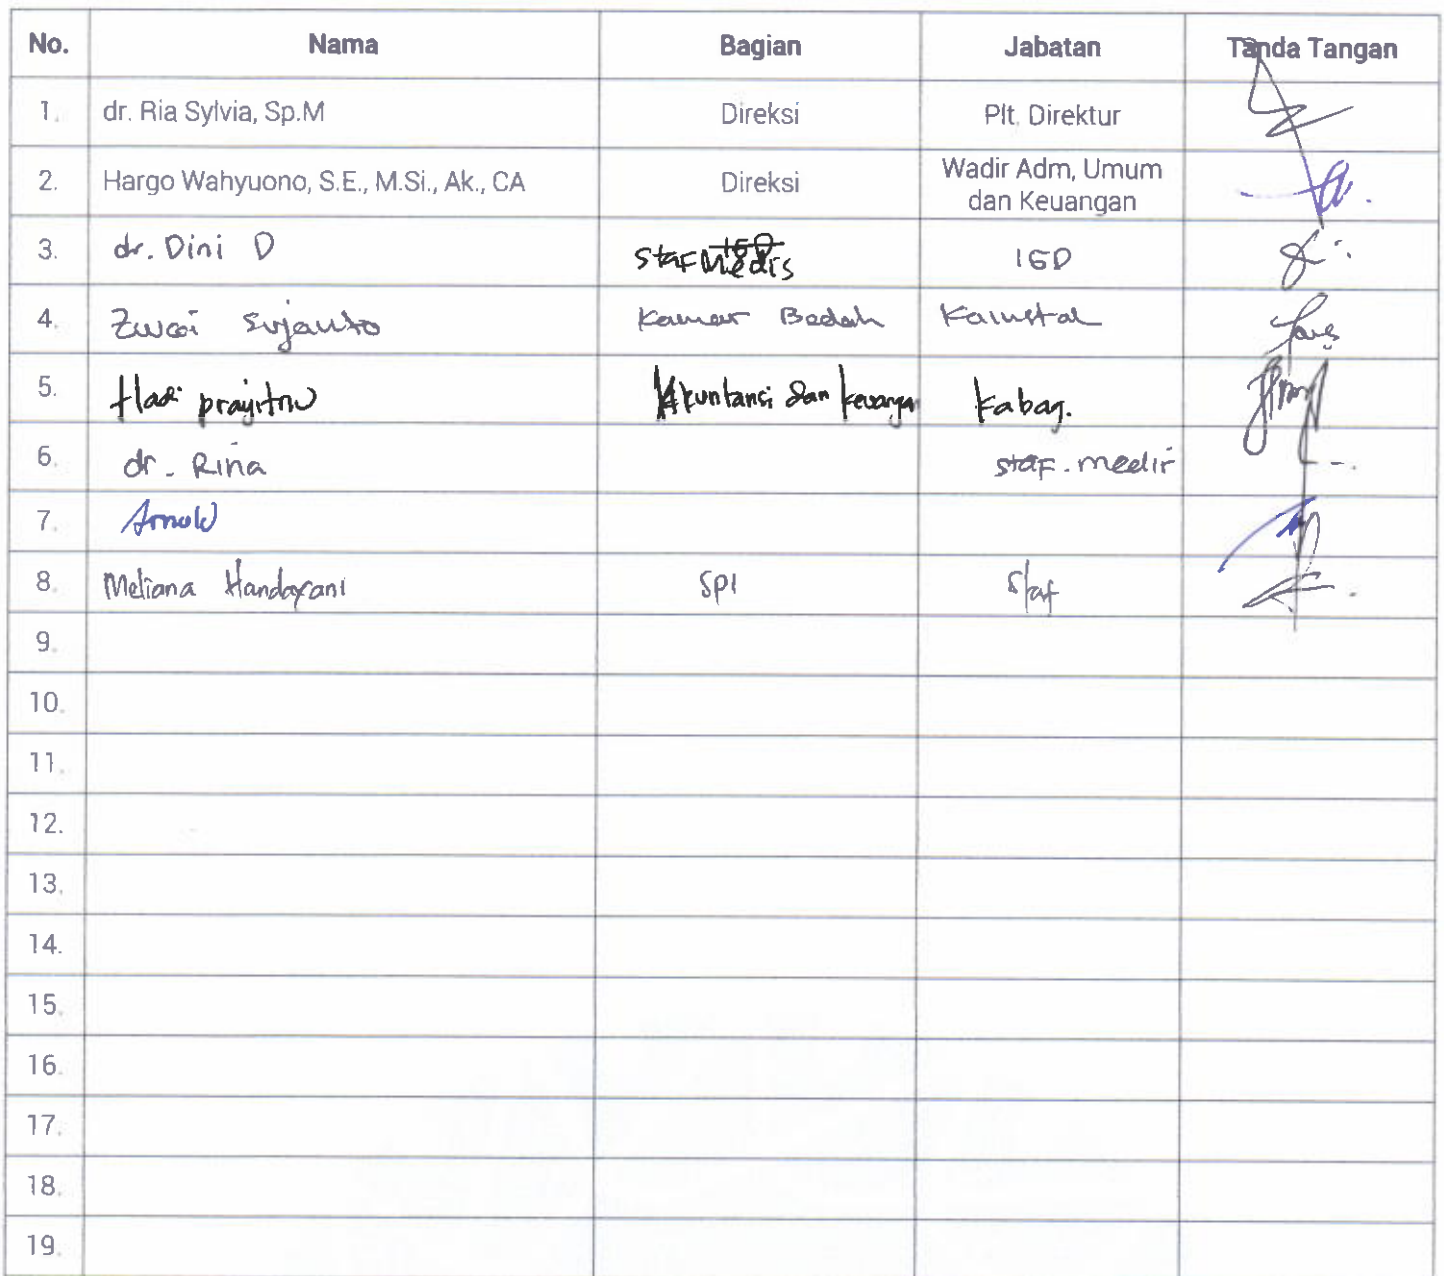 No. Nama Bagian Jabatan Tanda Tangan
1. dr. Ria Sylvia, Sp.M Direksi Plt. Direktur
2. Hargo Wahyuono, S.E., M.Si., Ak., CA Direksi Wadir Adm, Umum
dan Keuangan
3. dr. Dini D Staf Medis IGD
4. Sujanto Kamar Bedah Kainstal
5. Hadi prayitno Akuntansi dan keuangan kabag.
6. dr. Rina staf. medir
7. Arnold
8. Meliana Handayani SPI Staf
9.
10.
11.
12.
13.
14.
15.
16.
17.
18.
19.